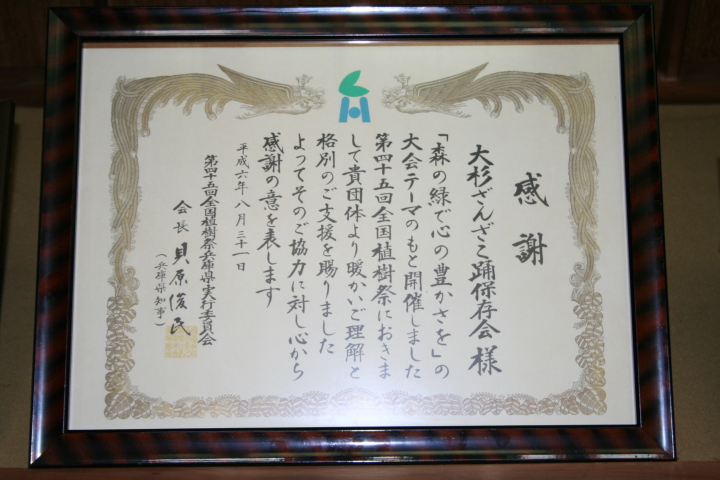 感謝
大杉ざんざこ踊保存会 様
「森の緑で心の豊かさを」の
大会テーマのもと開催しました
第四十五回全国植樹祭におきま
して貴団体より暖かいご理解と
格別のご支援を賜りました
よってそのご協力に対し心から
感謝の意を表します
平成六年八月三十一日
第四十五回全国植樹祭兵庫県実行委員会
会長 貝原俊民
（兵庫県知事）